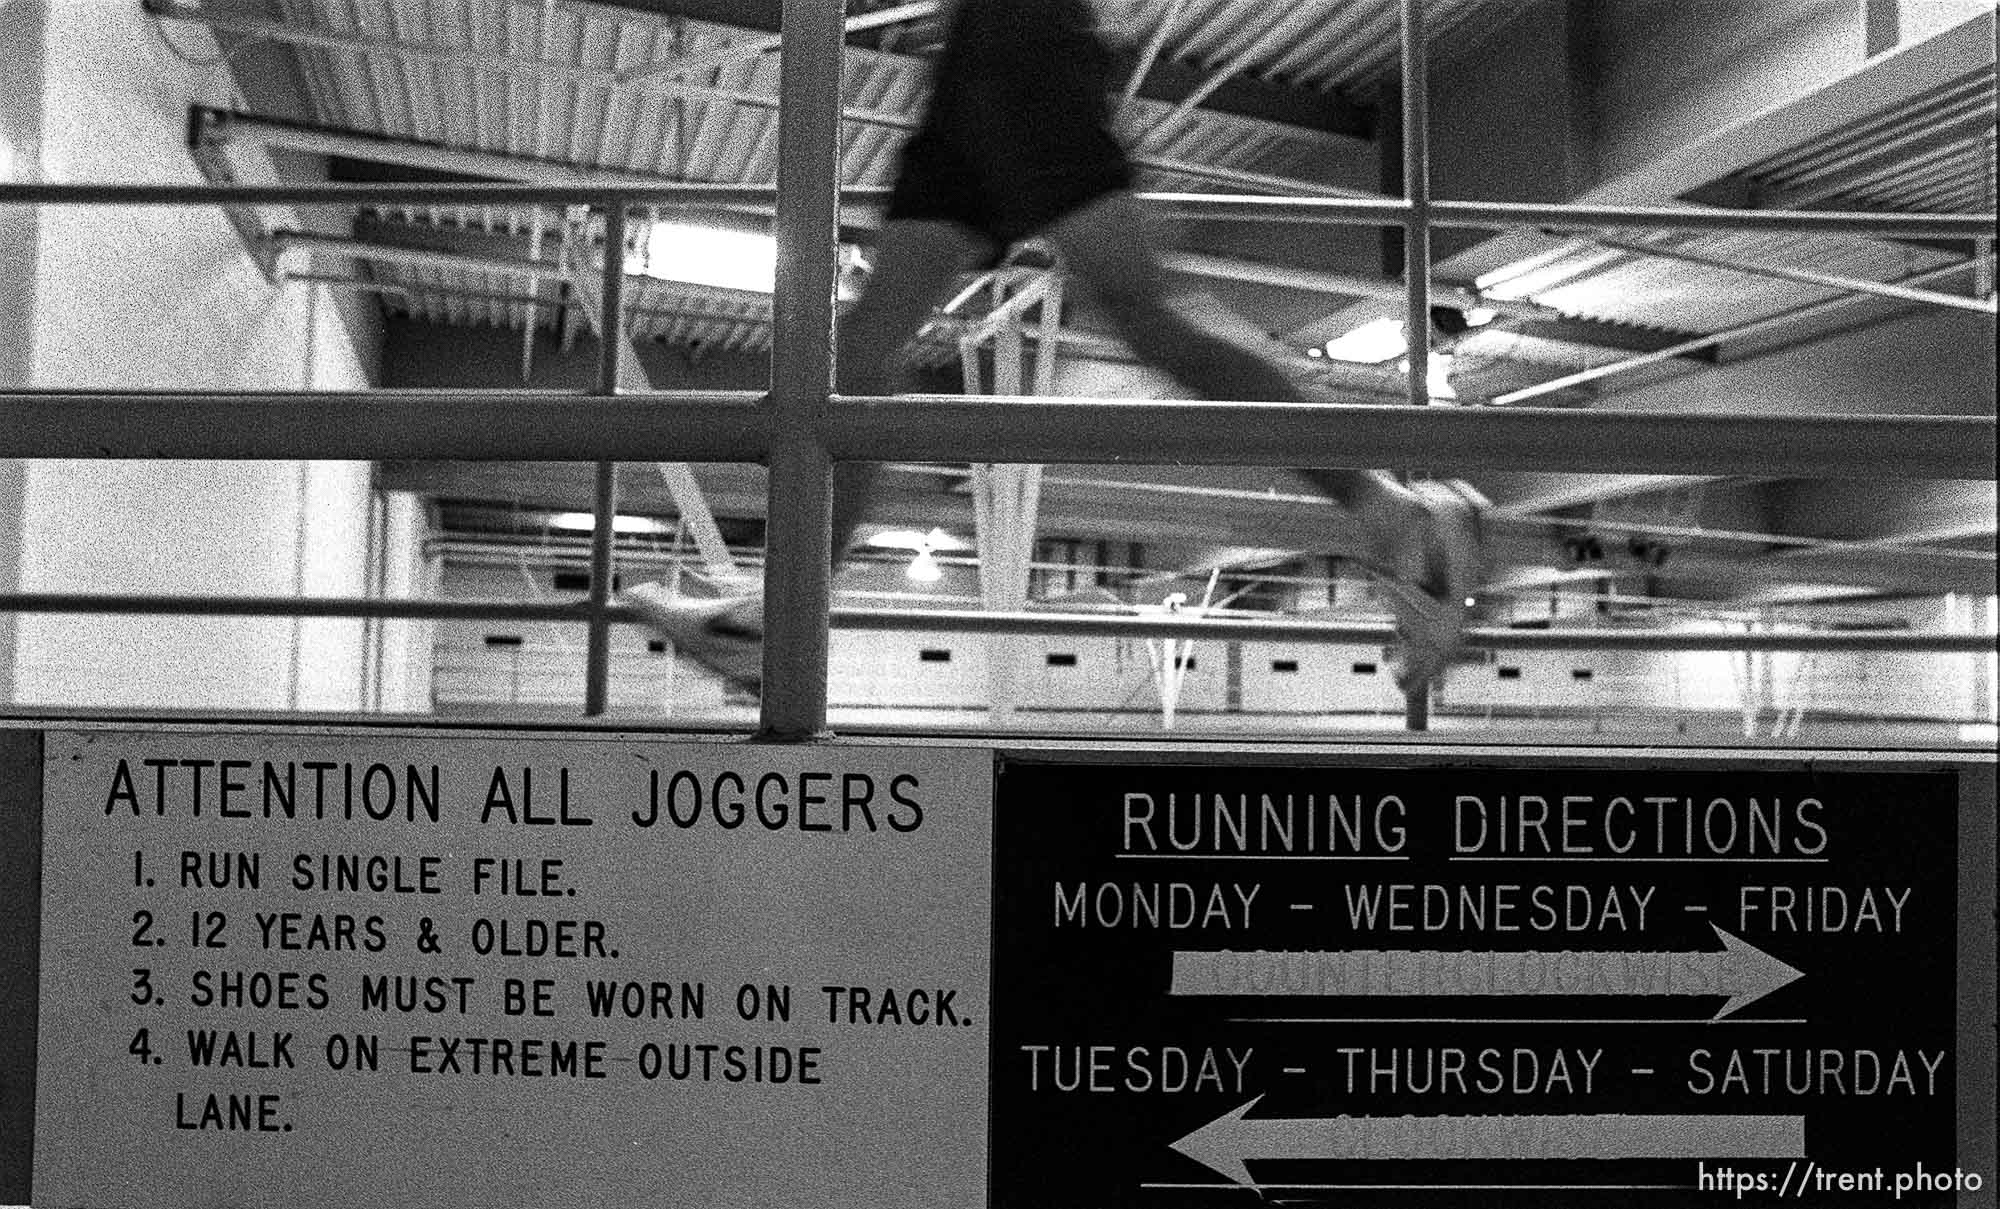 ATTENTION ALL JOGGERS
1. RUN SINGLE FILE.
2. 12 YEARS & OLDER.
3. SHOES MUST BE WORN ON TRACK.
4. WALK ON EXTREME OUTSIDE
LANE.
RUNNING DIRECTIONS
MONDAY - WEDNESDAY - FRIDAY
COUNTERCLOCKWISE
TUESDAY - THURSDAY - SATURDAY
CLOCKWISE
https://trent.photo